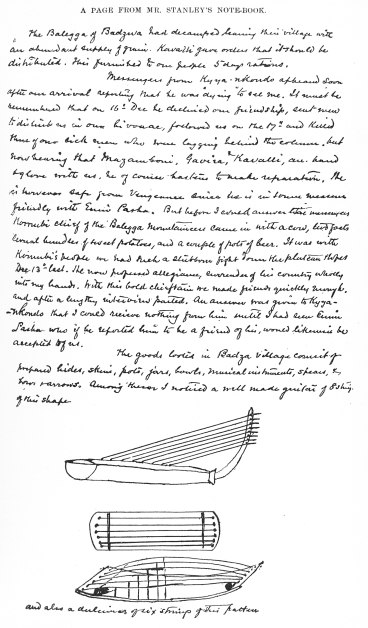 A PAGE FROM MR. STANLEY'S NOTE-BOOK.
The Balegga of Badzwa had decamped leaving their village with
an abundant supply of grain. Kavalli gave orders that it should be
distributed. This furnished to our people 5 days rations.
Messengers from Kyya-nkondo appeared soon
after our arrival reporting that he was "dying" to see me. It must be
remembered that on 16th Dec he declined our friendship, sent men
to disturb us in our bivouac, followed us on the 17th and killed
three of our sick men who were lagging behind the column, but
now hearing that Mazamboni, Gavira, Kavalli, are hand
& glove with us, he of course hastens to make reparation. He
is however safe from vengeance since he is in some measure
friendly with Emin Pasha. But before I could answer these messengers
Komubi chief of the Balegga mountaineers came in with a cow, two goats
several bundles of sweet potatoes, and a couple of pots of beer. It was with
Komubi's people we had such a stubborn fight on the plateau slopes
Dec 13th last. He now proposed allegiance, surrender of his country wholly
into my hands. With this bold chieftain we made friends quickly enough.
and after a lengthy interview parted. An answer was given to Kyya-
-nkondo that I could receive nothing from him until I had seen Emin
Pasha who if he reported him to be a friend of his, would likewise be
accepted by us.
The goods looted in Badza village consist of
prepared hides, skins, pots, jars, bowls, musical instruments, spears, &
bows & arrows. Among these I noticed a well made guitar of 8 strings
of this shape
and also a dulcimer of six strings of this pattern